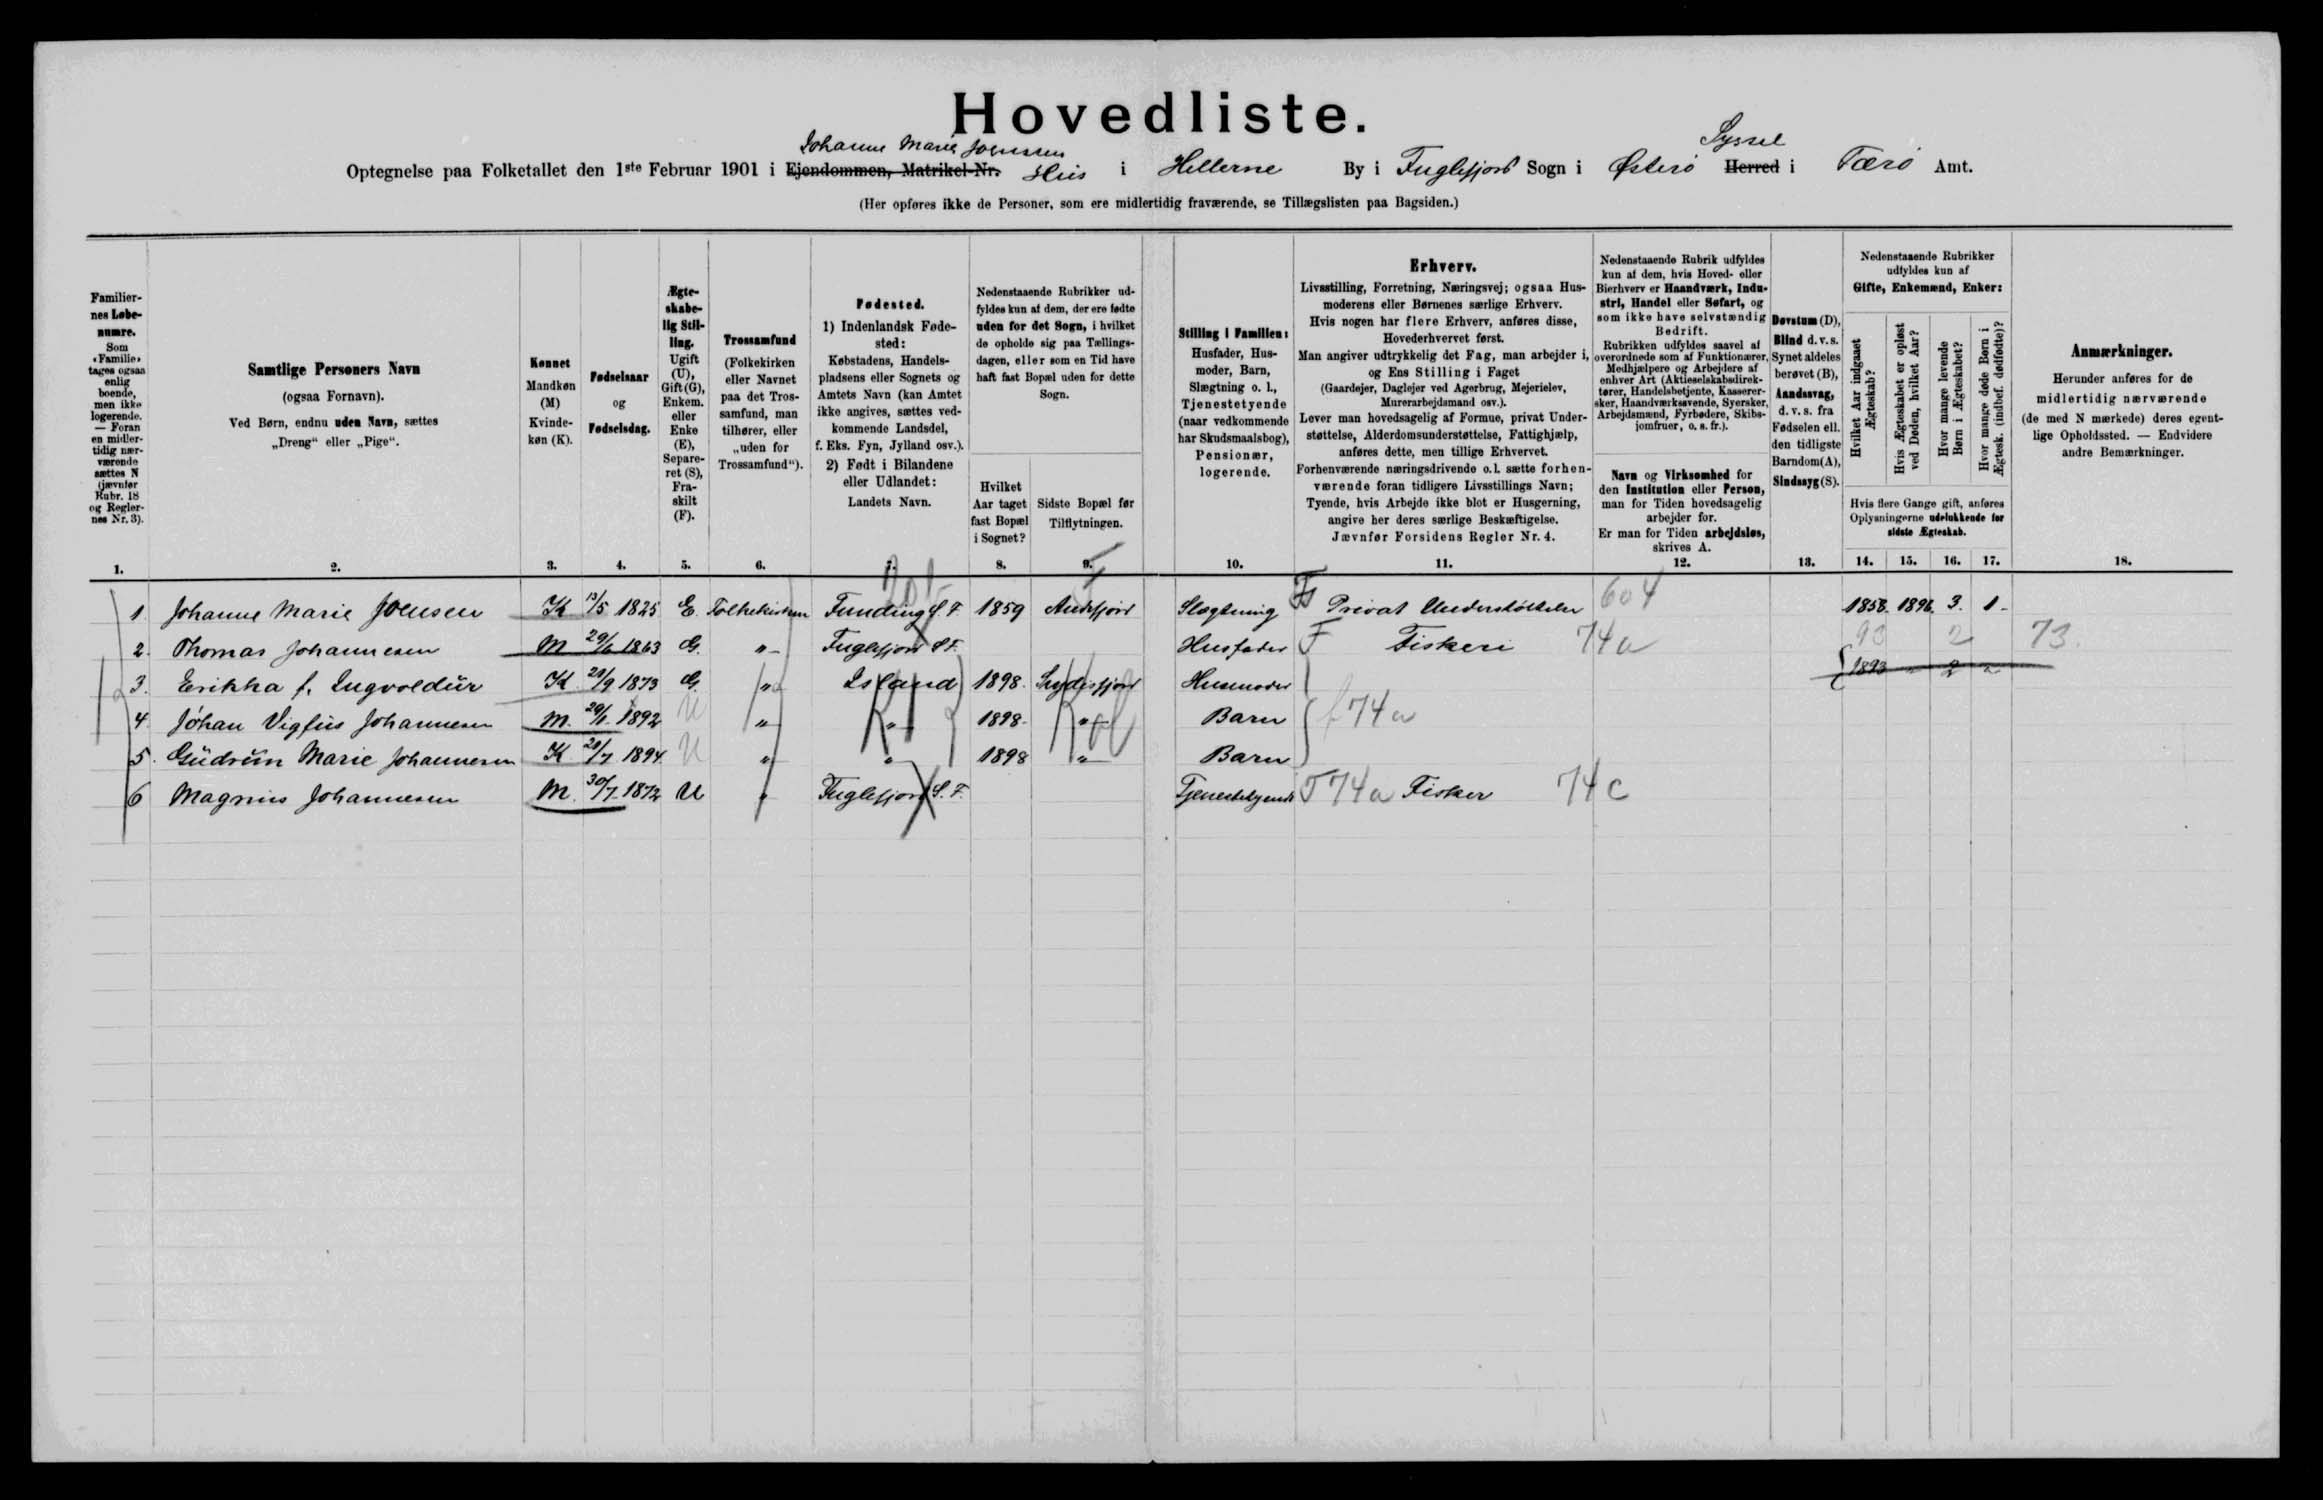 Hovedliste.
Johanne Marie Joensen Syssel
Optegnelse paa Folketallet den 1ste Februar 1901 i Ejendommen, Matrikel-Nr. Hüs i Hellerne By i Fuglefjord Sogn i Østerö Herred i Færö Amt.
(Her opføres ikke de Personer, som ere midlertidig fraværende, se Tillægslisten paa Bagsiden.)
Familiernes Løbenumre. Som «Familie» tages ogsaa enlig boende, men ikke logerende. — Foran en midlertidig nærværende sættes N (jævnfør Rubr. 18 og Reglernes Nr. 3).
Samtlige Personers Navn (ogsaa Fornavn). Ved Børn, endnu uden Navn, sættes „Dreng“ eller „Pige“.
Kønnet Mandkøn (M) Kvindekøn (K).
Fødselsaar og Fødselsdag.
Ægteskabelig Stilling. Ugift (U), Gift (G), Enkem. eller Enke (E), Separeret (S), Fraskilt (F).
Trossamfund (Folkekirken eller Navnet paa det Trossamfund, man tilhører, eller „uden for Trossamfund“).
Fødested. 1) Indenlandsk Fødested: Købstadens, Handelspladsens eller Sognets og Amtets Navn (kan Amtet ikke angives, sættes vedkommende Landsdel, f. Eks. Fyn, Jylland osv.). 2) Født i Bilandene eller Udlandet: Landets Navn.
Nedenstaaende Rubrikker udfyldes kun af dem, der ere fødte uden for det Sogn, i hvilket de opholde sig paa Tællingsdagen, eller som en Tid have haft fast Bopæl uden for dette Sogn.
Hvilket Aar taget fast Bopæl i Sognet?
Sidste Bopæl før Tilflytningen.
Stilling i Familien: Husfader, Husmoder, Barn, Slægtning o. l., Tjenestetyende (naar vedkommende har Skudsmaalsbog), Pensionær, logerende.
Erhverv.
Livsstilling, Forretning, Næringsvej; ogsaa Husmoderens eller Børnenes særlige Erhverv.
Hvis nogen har flere Erhverv, anføres disse, Hovederhvervet først.
Man angiver udtrykkelig det Fag, man arbejder i, og Ens Stilling i Faget
(Gaardejer, Daglejer ved Agerbrug, Mejerielev, Murerarbejdsmand osv.).
Lever man hovedsagelig af Formue, privat Understøttelse, Alderdomsunderstøttelse, Fattighjælp, anføres dette, men tillige Erhvervet.
Forhenværende næringsdrivende o. l. sætte forhenværende foran tidligere Livsstillings Navn;
Tyende, hvis Arbejde ikke blot er Husgerning, angive her deres særlige Beskæftigelse.
Jævnfør Forsidens Regler Nr. 4.
Nedenstaaende Rubrik udfyldes kun af dem, hvis Hoved- eller Bierhverv er Haandværk, Industri, Handel eller Søfart, og som ikke have selvstændig Bedrift.
Rubrikken udfyldes saavel af overordnede som af Funktionærer, Medhjælpere og Arbejdere af enhver Art (Aktieselskabsdirektører, Handelsbetjente, Kasserersker, Haandværkssvende, Syersker, Arbejdsmænd, Fyrbødere, Skibsjomfruer, o. s. fr.).
Navn og Virksomhed for den Institution eller Person, man for Tiden hovedsagelig arbejder for.
Er man for Tiden arbejdsløs, skrives A.
Døvstum (D), Blind d. v. s. Synet aldeles berøvet (B), Aandssvag, d. v. s. fra Fødselen ell. den tidligste Barndom (A), Sindssyg (S).
Nedenstaaende Rubrikker udfyldes kun af Gifte, Enkemænd, Enker:
Hvilket Aar indgaaet Ægteskab?
Hvis Ægteskabet er opløst ved Døden, hvilket Aar?
Hvor mange levende Børn i Ægteskabet?
Hvor mange døde Børn i Ægtesk. (indbef. dødfødte)?
Hvis flere Gange gift, anføres Oplysningerne udelukkende for sidste Ægteskab.
Anmærkninger.
Herunder anføres for de midlertidig nærværende (de med N mærkede) deres egentlige Opholdssted. — Endvidere andre Bemærkninger.
1. 2. 3. 4. 5. 6. 7. 8. 9. 10. 11. 12. 13. 14. 15. 16. 17. 18.
1. Johanne Marie Joensen K 13/5 1825 E. Folkekirken Funding S. F. 1859 Andefjord Slægtning Privat Understöttelse 604 1858. 1896. 3. 1.
2. Thomas Johannesen M 29/6 1863 G. " Fuglefjord S F. Husfader F Fiskeri 74a 93 2 73.
3. Erikka f. Ingvoldür K 21/9 1873 G. " Island 1898. Husmoder 1893 2
4. Jóhan Vigfüs Johannesen M. 29/1 1892 U " " 1898. " Barn f 74a
5. Güdrün Marie Johannesen K 20/7 1894 U " " 1898 " Barn
6 Magnus Johannesen M. 30/7 1872 U " Fuglefjord S. F. Tjenestetyende 74a Fisker 74c